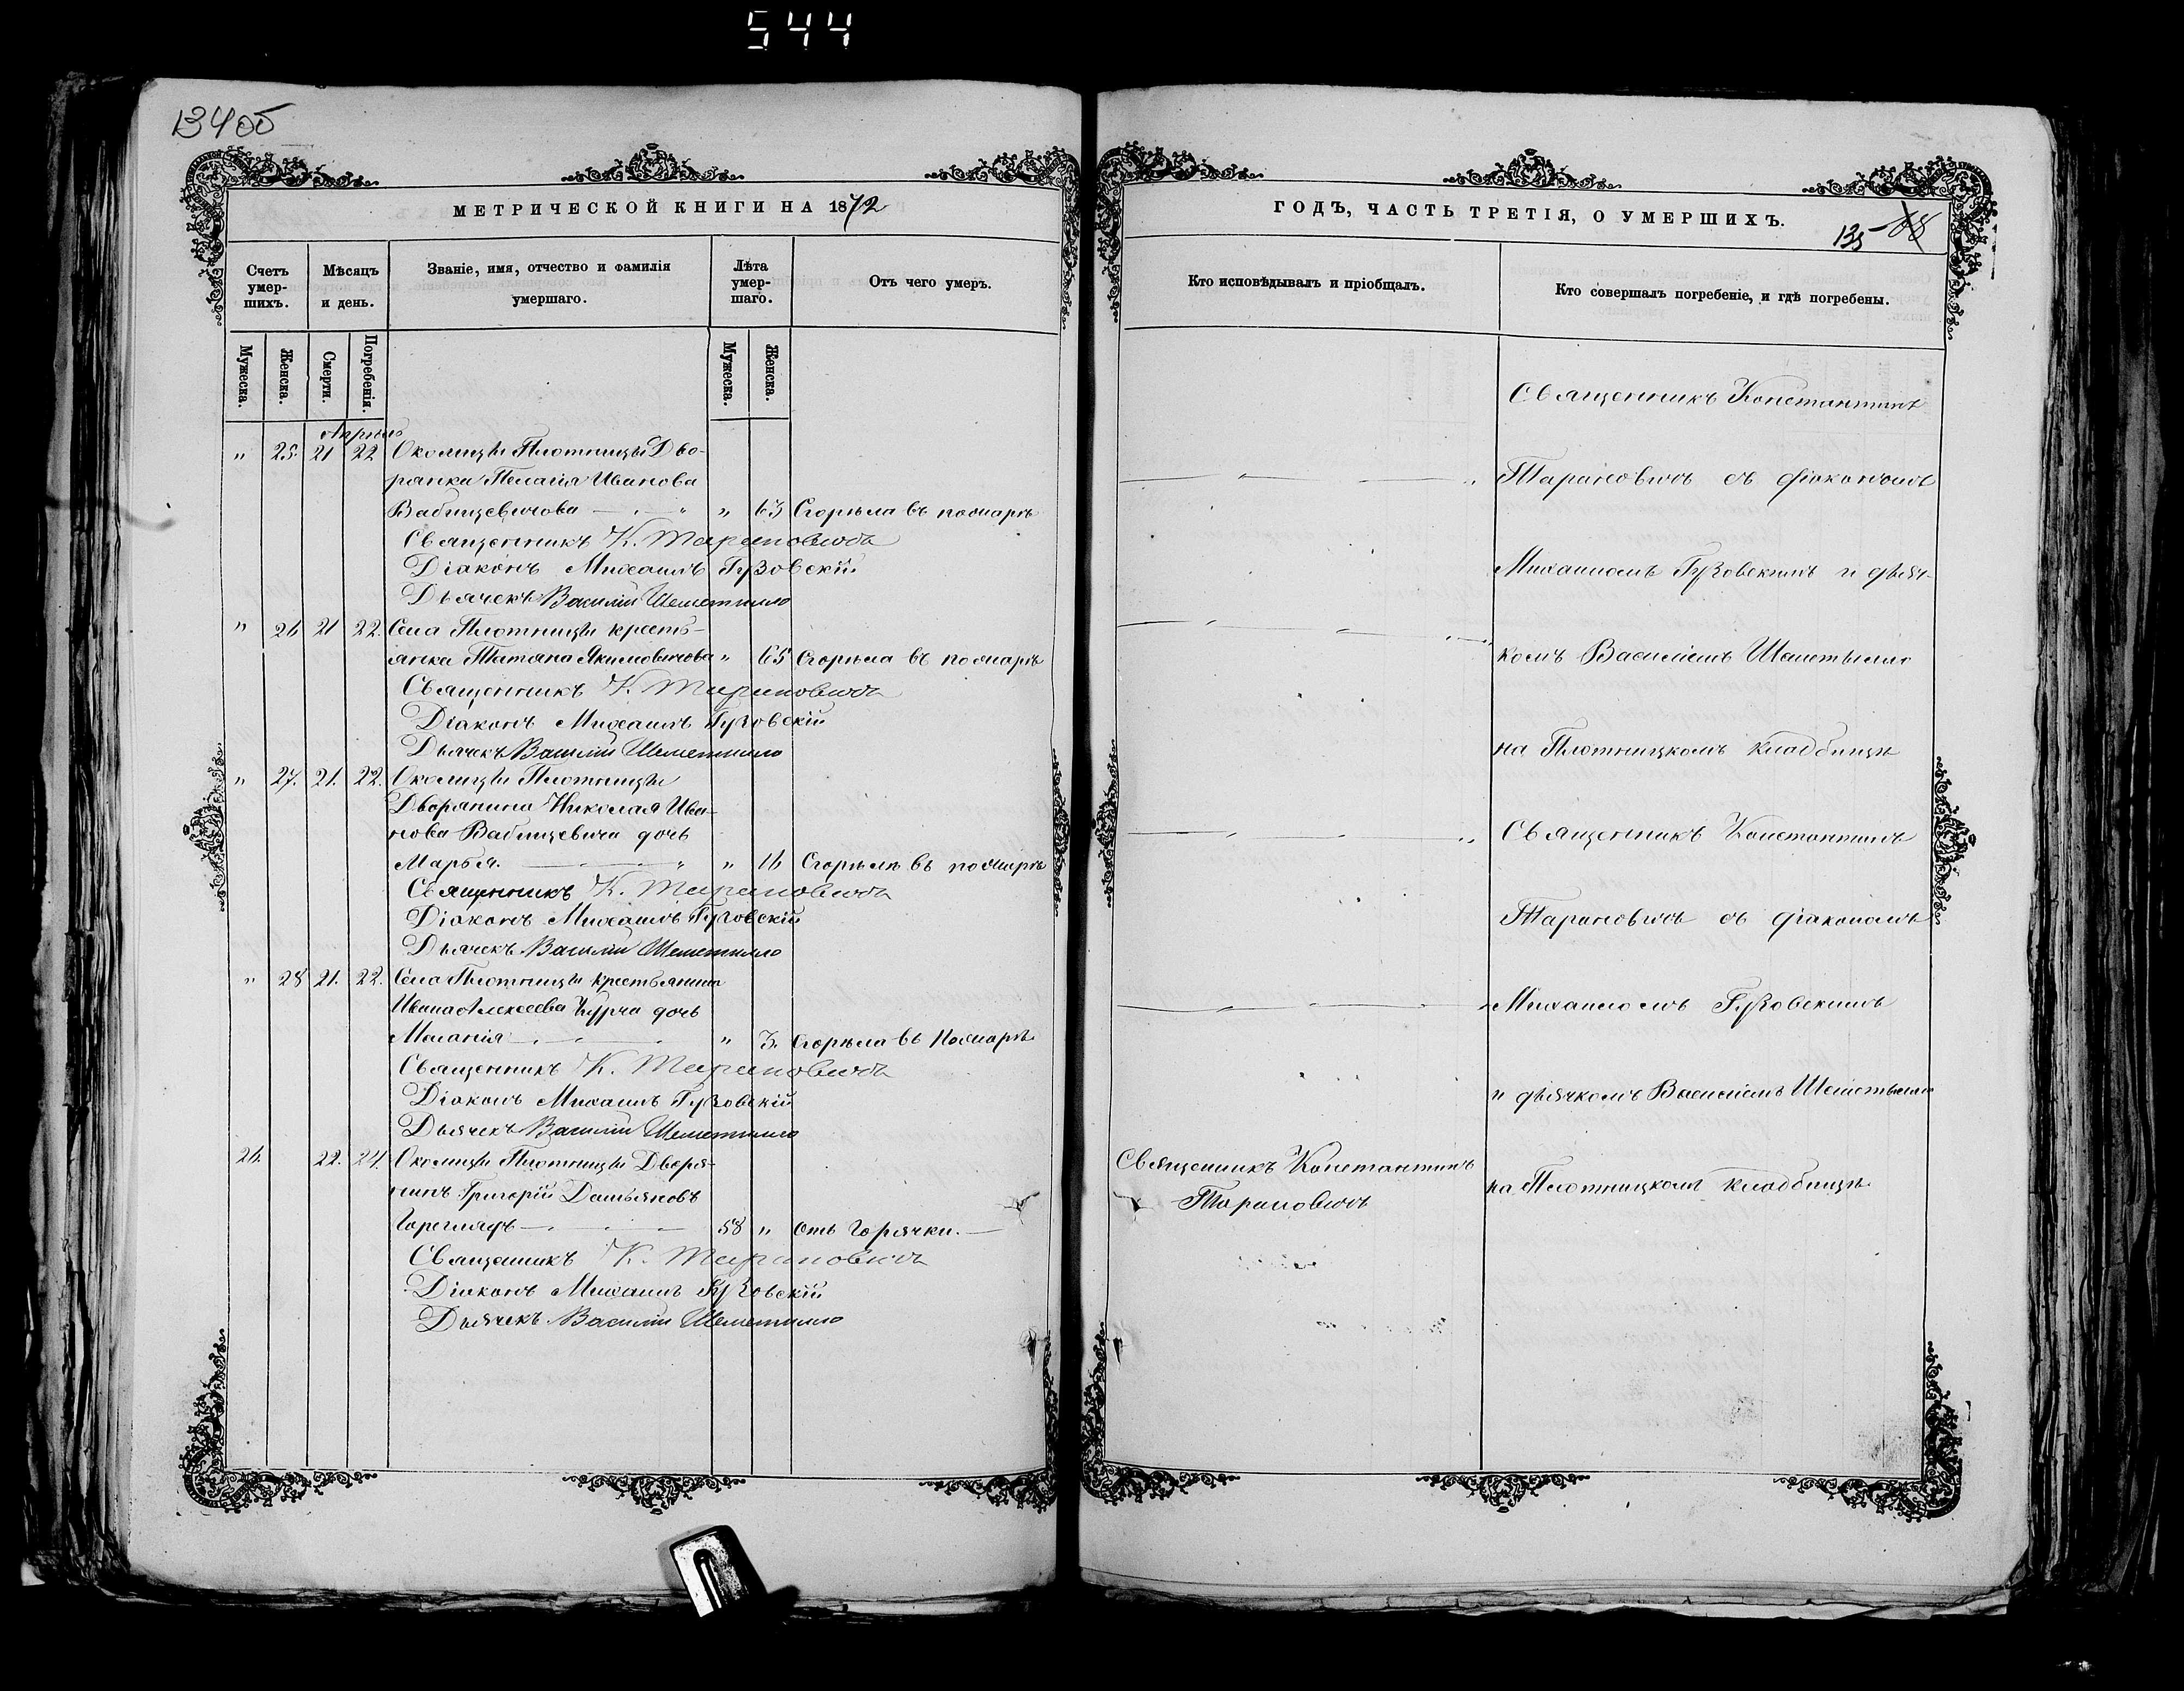 544
134об
МЕТРИЧЕСКОЙ КНИГИ НА 1872
Счетъ умер-шихъ.
Мѣсяцъ и день.
Званіе, имя, отчество и фамилія умершаго.
Лѣта умер-шаго.
Отъ чего умеръ.
Мужеска.
Женска.
Смерти.
Погребенія.
Мужеска.
Женска.
Апрѣль
" 25. 21 22 Околицы Плотницы Дво-
рянка Пелагія Иванова
Вабищевичова " 63 Сгорѣла въ пожарѣ
Священникъ К. Тарановичъ
Діаконъ Михаилъ Гузовскій
Дьячекъ Василій Шеметилло
" 26 21 22. Села Плотницы кресть-
янка Татяна Якимовичова " 65 Сгорѣла въ пожарѣ
Священникъ К. Тарановичъ
Діаконъ Михаилъ Гузовскій
Дьячекъ Василій Шеметилло
" 27. 21. 22. Околицы Плотницы
Дворянина Николая Ива-
нова Вабищевича дочь
Марья. " 16 Сгорѣла въ пожарѣ
Священникъ К. Тарановичъ
Діаконъ Михаилъ Гузовскій
Дьячекъ Василій Шеметилло
" 28 21. 22. Села Плотницы крестьянина
Ивана Алексеева Курча дочь
Меланія " 3. Сгорѣла въ Пожарѣ
Священникъ К. Тарановичъ
Діаконъ Михаилъ Гузовскій
Дьячекъ Василій Шеметилло
26. 22. 24. Околицы Плотницы Дворя-
нинъ Григорій Демьяновъ
Горегляды 58 " Отъ Горячки.
Священникъ К. Тарановичъ
Діаконъ Михаилъ Гузовскій
Дьячекъ Василій Шеметилло
ГОДЪ, ЧАСТЬ ТРЕТІЯ, О УМЕРШИХЪ.
135
Кто исповѣдывалъ и пріобщалъ.
Кто совершалъ погребеніе, и гдѣ погребены.
Священникъ Константинъ
Тарановичъ съ діакономъ
Михаиломъ Гузовскимъ и дьяч-
комъ Василіемъ Шеметилло
на Плотницкомъ кладбищѣ
Священникъ Константинъ
Тарановичъ съ діакономъ
Михаиломъ Гузовскимъ
и дьячкомъ Василіемъ Шеметилло
на Плотницкомъ кладбищѣ
Священникъ Константинъ
Тарановичъ